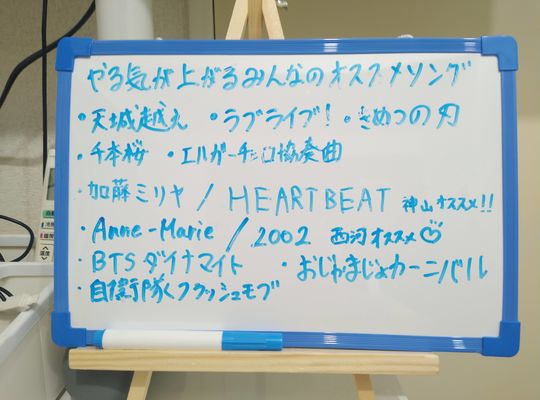 やる気が上がるみんなのオススメソング
・天城越え ・ラブライブ! ・きめつの刃
・千本桜 ・エルガーチェロ協奏曲
・加藤ミリヤ / HEARTBEAT 神山オススメ!!
・Anne-Marie / 2002 西河オススメ♡
・BTSダイナマイト ・おジャまじょカーニバル
・自衛隊フラッシュモブ